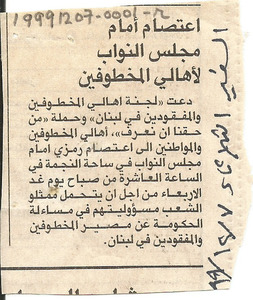 19991207-0001-r
اعتصام أمام
مجلس النواب
لأهالي المخطوفين
دعت «لجنة اهالي المخطوفين
والمفقودين في لبنان» وحملة «من
حقنا ان نعرف»، أهالي المخطوفين
والمواطنين الى اعتصام رمزي امام
مجلس النواب في ساحة النجمة في
الساعة العاشرة من صباح يوم غد
الاربعاء من اجل ان يتحمل ممثلو
الشعب مسؤوليتهم في مساءلة
الحكومة عن مصير المخطوفين
والمفقودين في لبنان.
السفير